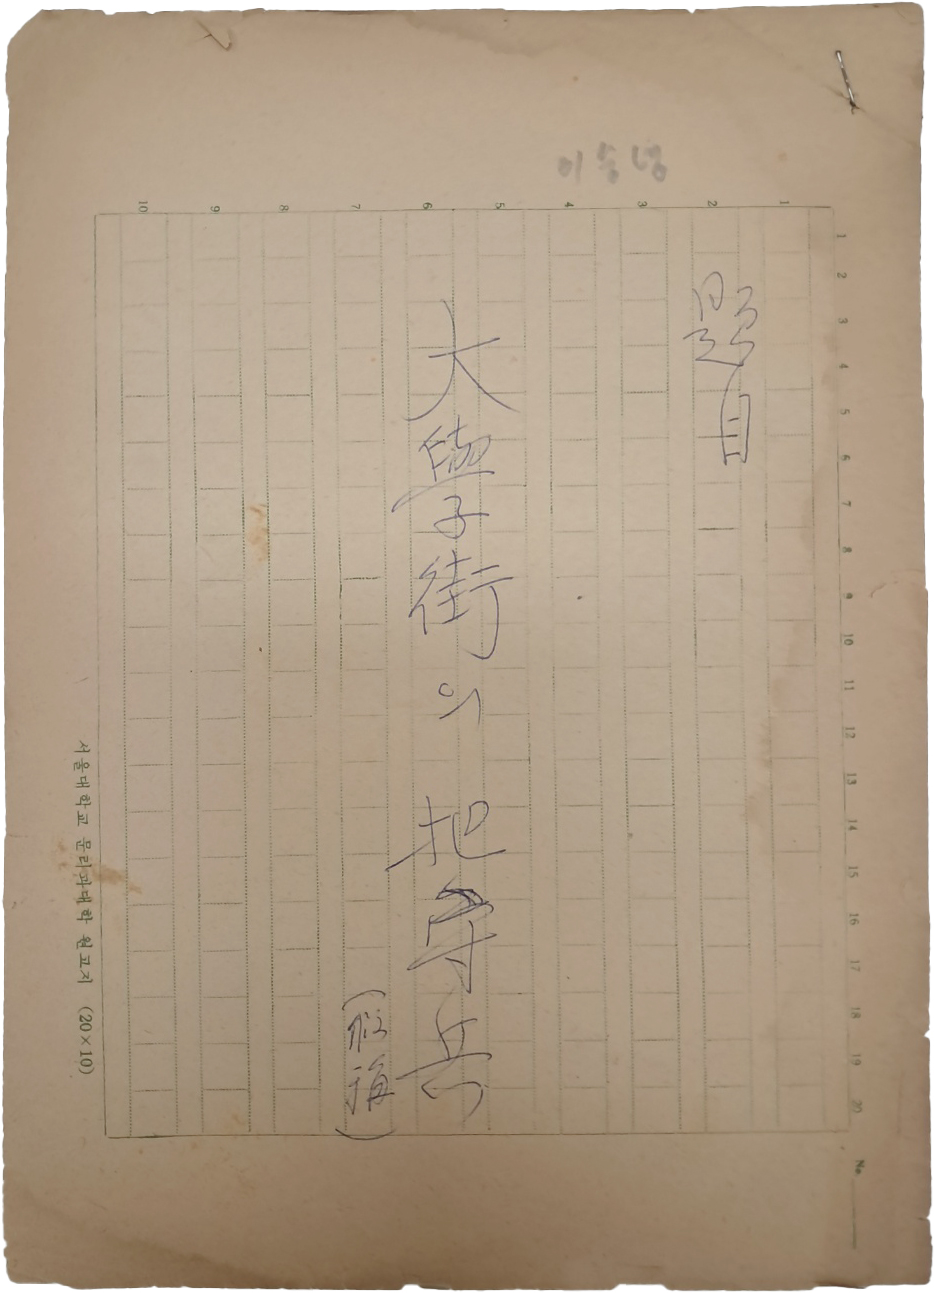 이숭녕
1 2 3 4 5 6 7 8 9 10
1 2 3 4 5 6 7 8 9 10 11 12 13 14 15 16 17 18 19 20
No.
題目
大學街의 把守兵
(假稱)
서울대학교 문리과대학 원고지 (20×10)